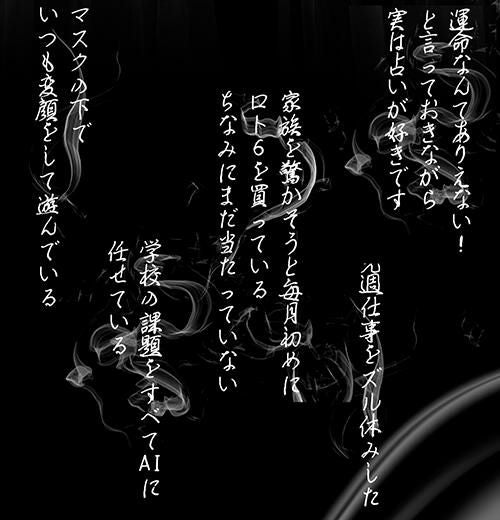 運命なんてありえない！
と言っておきながら
実は占いが好きです
週仕事をズル休みした
家族を驚かそうと毎月初めに
ロト６を買っている
ちなみにまだ当たっていない
学校の課題をすべてAIに
任せている
マスクの下で
いつも変顔をして遊んでいる